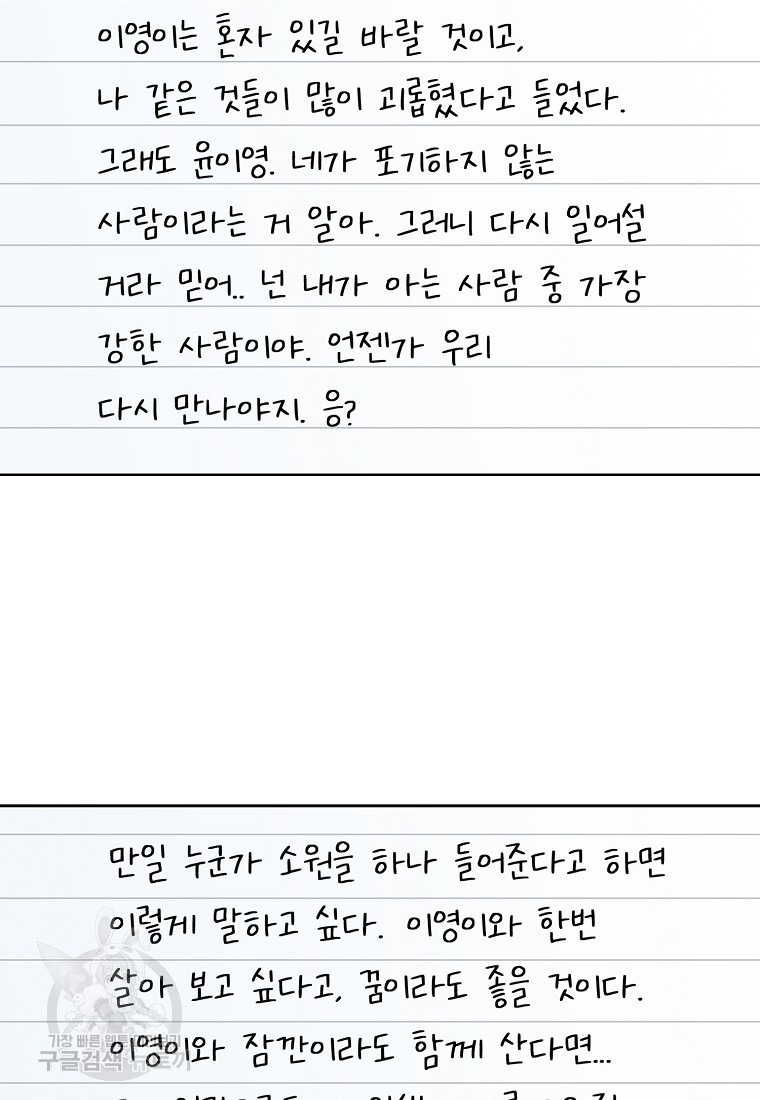 이영이는 혼자 있길 바랄 것이고,
나 같은 것들이 많이 괴롭혔다고 들었다.
그래도 윤이영. 네가 포기하지 않는
사람이라는 거 알아. 그러니 다시 일어설
거라 믿어.. 넌 내가 아는 사람 중 가장
강한 사람이야. 언젠가 우리
다시 만나야지. 응?
만일 누군가 소원을 하나 들어준다고 하면
이렇게 말하고 싶다. 이영이와 한번
살아 보고 싶다고, 꿈이라도 좋을 것이다.
이영이와 잠깐이라도 함께 산다면...
가장 빠른 웹툰
구글검색